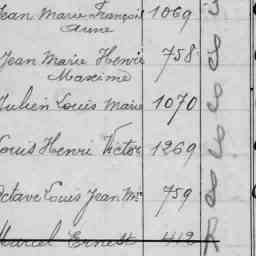 Jean Marie François 1069 S
Aimé
Jean Marie Henri 758 S
Maxime
Julien Louis Marie 1070 S
Louis Henri Victor 1269 S
Octave Louis Jean Mie 759 S
Marcel Ernest 412 R